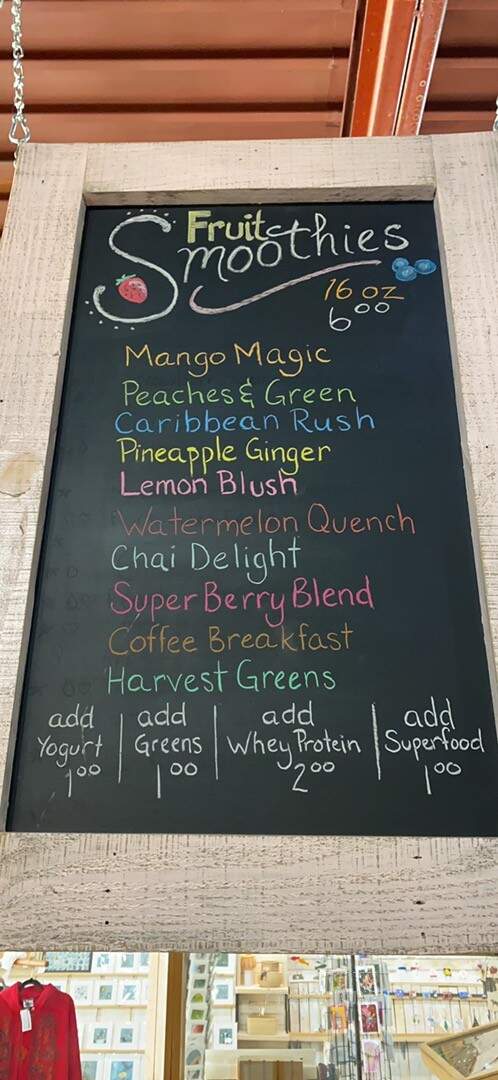 Fruit
Smoothies
16 oz
6 00
Mango Magic
Peaches & Green
Caribbean Rush
Pineapple Ginger
Lemon Blush
Watermelon Quench
Chai Delight
Super Berry Blend
Coffee Breakfast
Harvest Greens
add Yogurt 1 00
add Greens 1 00
add Whey Protein 2 00
add Superfood 1 00